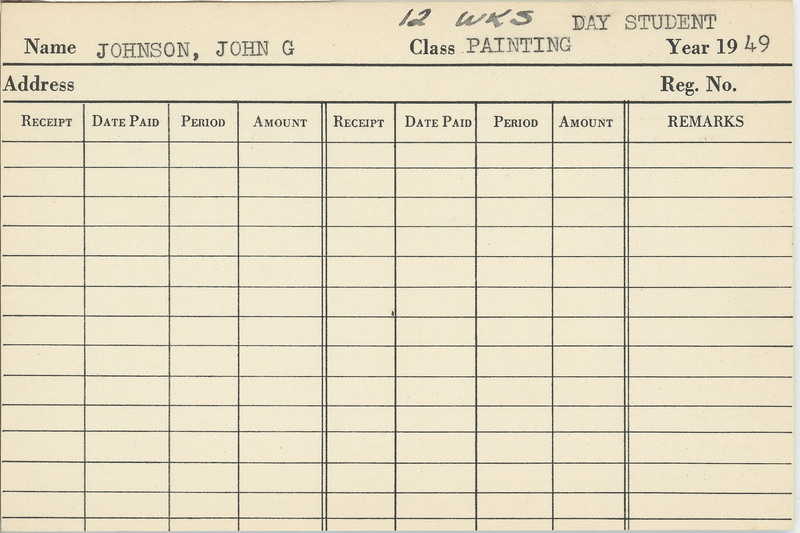 12 WKS DAY STUDENT
Name JOHNSON, JOHN G Class PAINTING Year 1949
Address Reg. No.
RECEIPT DATE PAID PERIOD AMOUNT RECEIPT DATE PAID PERIOD AMOUNT REMARKS